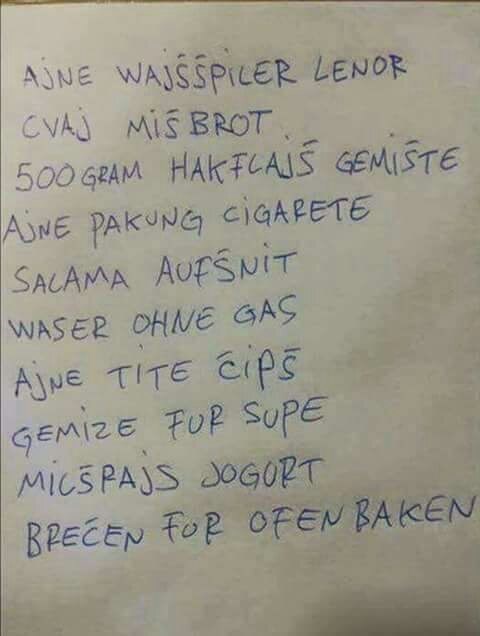 AJNE WAJŠŠPILER LENOR
CVAJ MIŠBROT.
500GRAM HAKFLAJŠ GEMIŠTE
AJNE PAKUNG CIGARETE
SALAMA AUFŠNIT
WASER OHNE GAS
AJNE TITE ČIPŠ
GEMIZE FUR SUPE
MILŠRAJS JOGURT
BREČEN FUR OFEN BAKEN